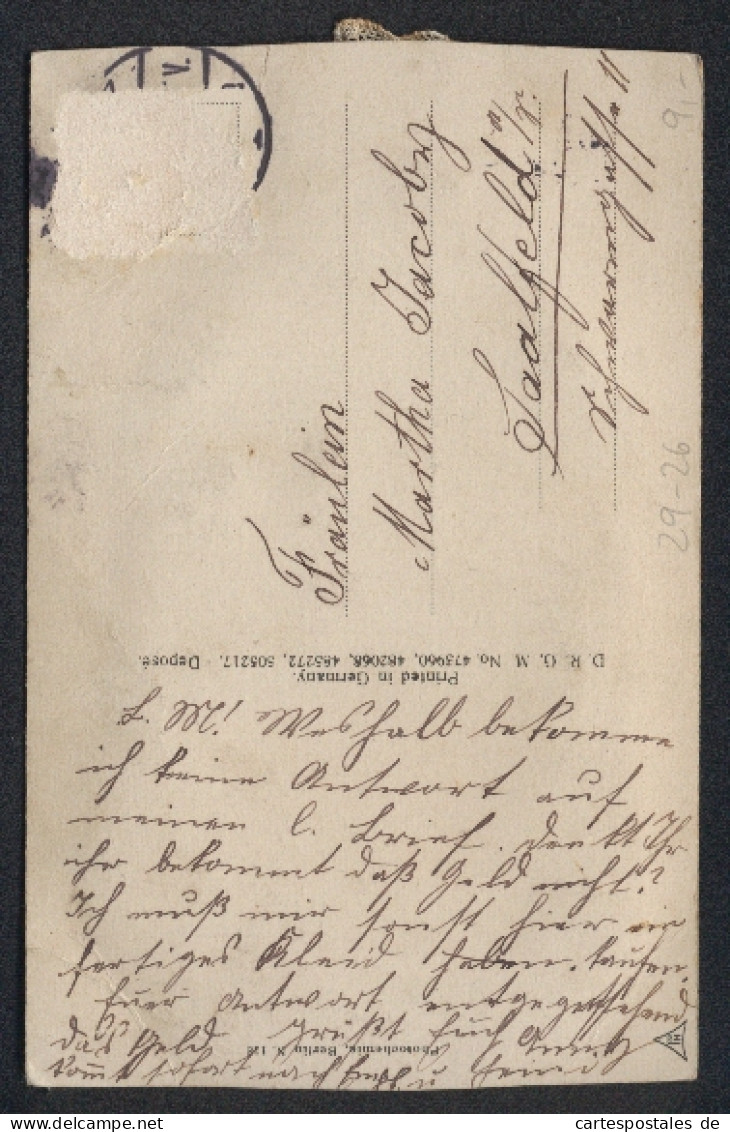 Fräulein
Martha Jacoby
Saalfeld a/S.
11
9,-
29-26
D. R. G. M. No. 473960, 482068, 485272, 505217. - Deposé.
Printed in Germany.
L. M! Weshalb bekomme
ich keine Antwort auf
meinen l. Brief. Denkt Ihr
ihr bekommt daß Geld nicht?
Ich muß mir sonst hier ein
fertiges Kleid kaufen.
Euer Antwort entgegensehend
Grüßt Euch
das Geld
kommt sofort nach
Photochemie, Berlin N.
cartespostales de